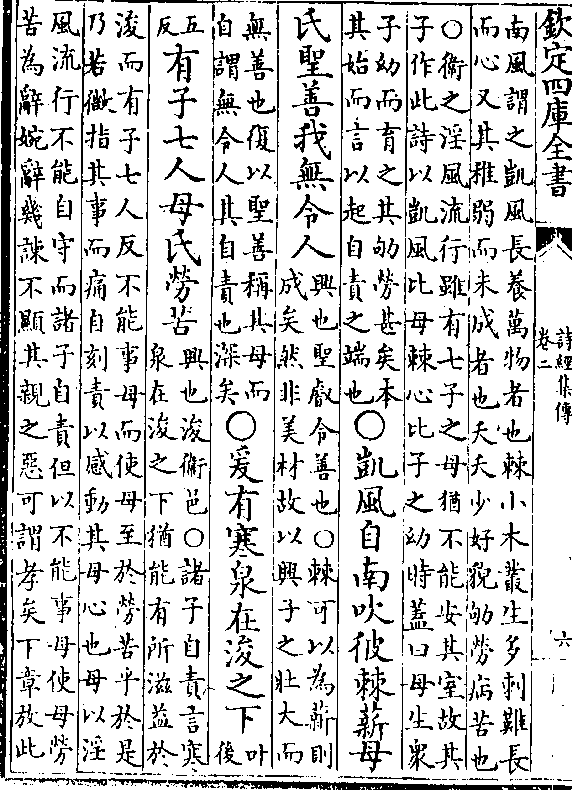 欽定四庫全書
詩經集傳
卷二
六
南風謂之凱風長養萬物者也棘小木叢生多刺難長
而心又其稚弱而未成者也夭夭少好貌劬勞病苦也
○衛之淫風流行雖有七子之母猶不能安其室故其
子作此詩以凱風比母棘心比子之幼時蓋曰母生衆
子幼而育之其劬勞甚矣本
其始而言以起自責之端也○凱風自南吹彼棘薪母
氏聖善我無令人興也聖叡令善也○棘可以為薪則
成矣然非美材故以興子之壯大而
無善也復以聖善稱其母而
自謂無令人其自責也深矣○爰有寒泉在浚之下叶後
五反有子七人母氏勞苦興也浚衛邑○諸子自責言寒
泉在浚之下猶能有所滋益於
浚而有子七人反不能事母而使母至於勞苦乎於是
乃若微指其事而痛自刻責以感動其母心也母以淫
風流行不能自守而諸子自責但以不能事母使母勞
苦為辭婉辭幾諫不顯其親之惡可謂孝矣下章放此